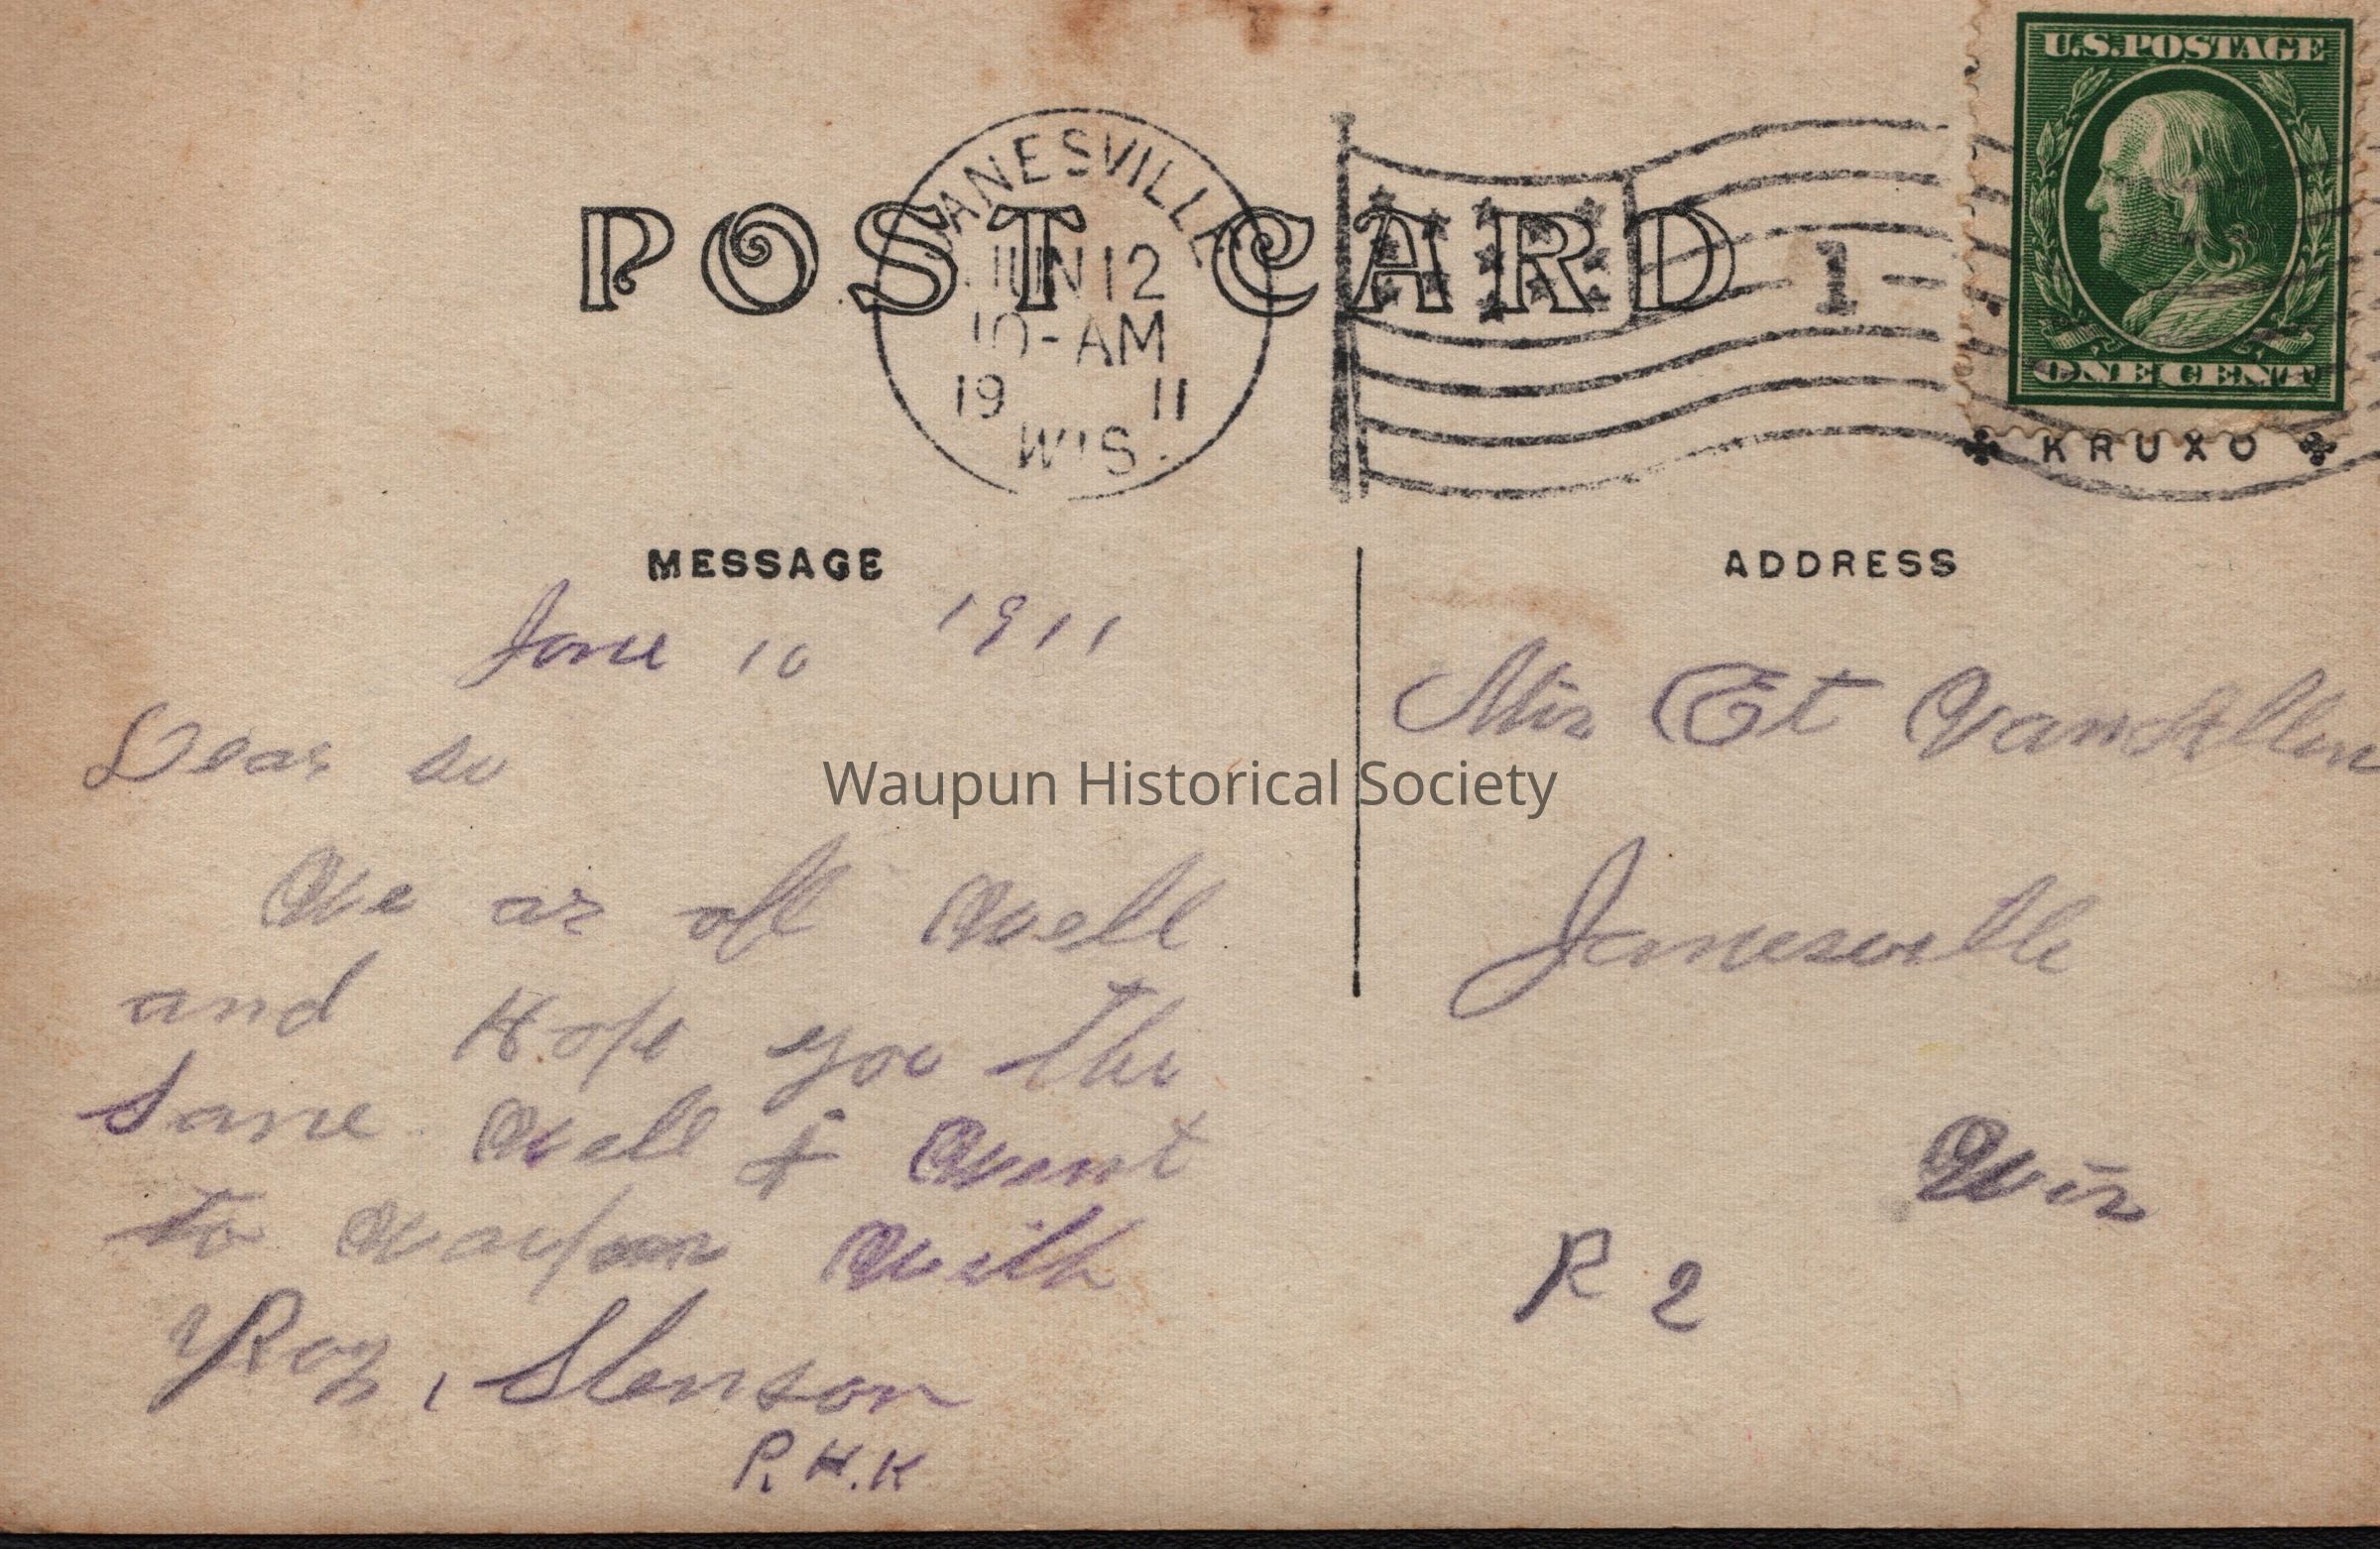 U.S. POSTAGE
ONE CENT
JANESVILLE
JUN 12
10-AM
19 11
WIS.
1
POST CARD
KRUXO
MESSAGE
June 10 1911
Dear
We ar all Well
and Hope you the
Same Well I Went
to Waupun With
Roy, Stenson
R.H.K
ADDRESS
Et VanAllen
Janesville
Wis
R 2
Waupun Historical Society